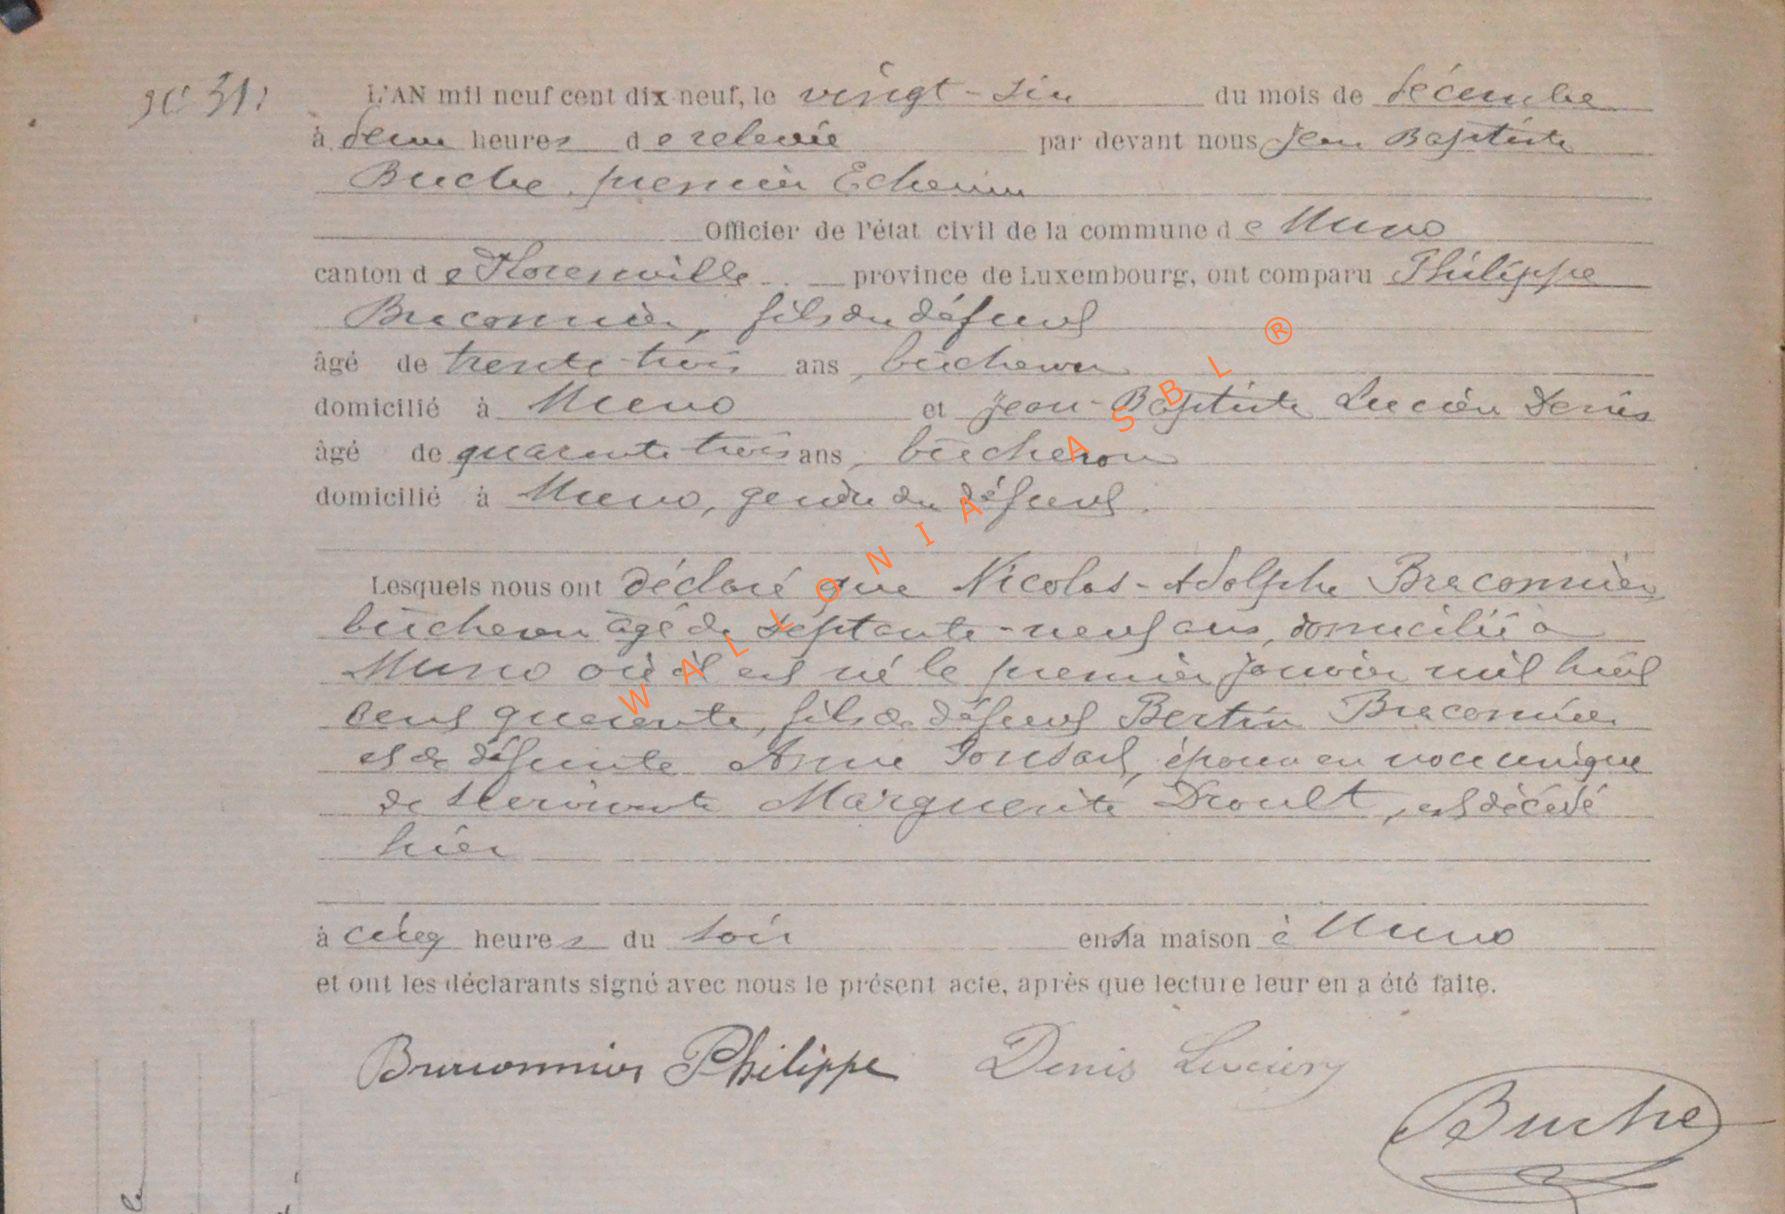 N° 31.
L'AN mil neuf cent dix-neuf, le vingt-six du mois de décembre
à deux heures de relevée par devant nous Jean Baptiste
Buche, premier Echevin
Officier de l'état civil de la commune de Muno
canton de Florenville province de Luxembourg, ont comparu Philippe
Braconnier, fils du défunt
âgé de trente trois ans, bûcheron
domicilié à Muno et Jean-Baptiste Lucien Denis
âgé de quarante trois ans, bûcheron
domicilié à Muno, gendre du défunt.
Lesquels nous ont déclaré que Nicolas-Adolphe Braconnier
bûcheron âgé de septante-neuf ans, domicilié à
Muno où il est né le premier janvier mil huit
cent quarante, fils de défunt Bertin Braconnier
et de défunte Anne Ponsart, époux en noce unique
de survivante Marguerite Droult, est décédé
hier
à cinq heures du soir en sa maison à Muno
et ont les déclarants signé avec nous le présent acte, après que lecture leur en a été faite.
Braconnier Philippe Denis Lucien
Buche
WALLONIA ASBL ®